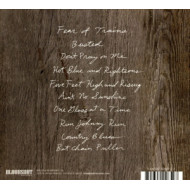 Fear of Trains
Busted
Don't Pray on Me
Hot Blue and Righteous
Five Feet High and Rising
Ain't No Sunshine
One Glass at a Time
Run Johnny Run
Country Blues
But Chain Puller
BLOODSHOT